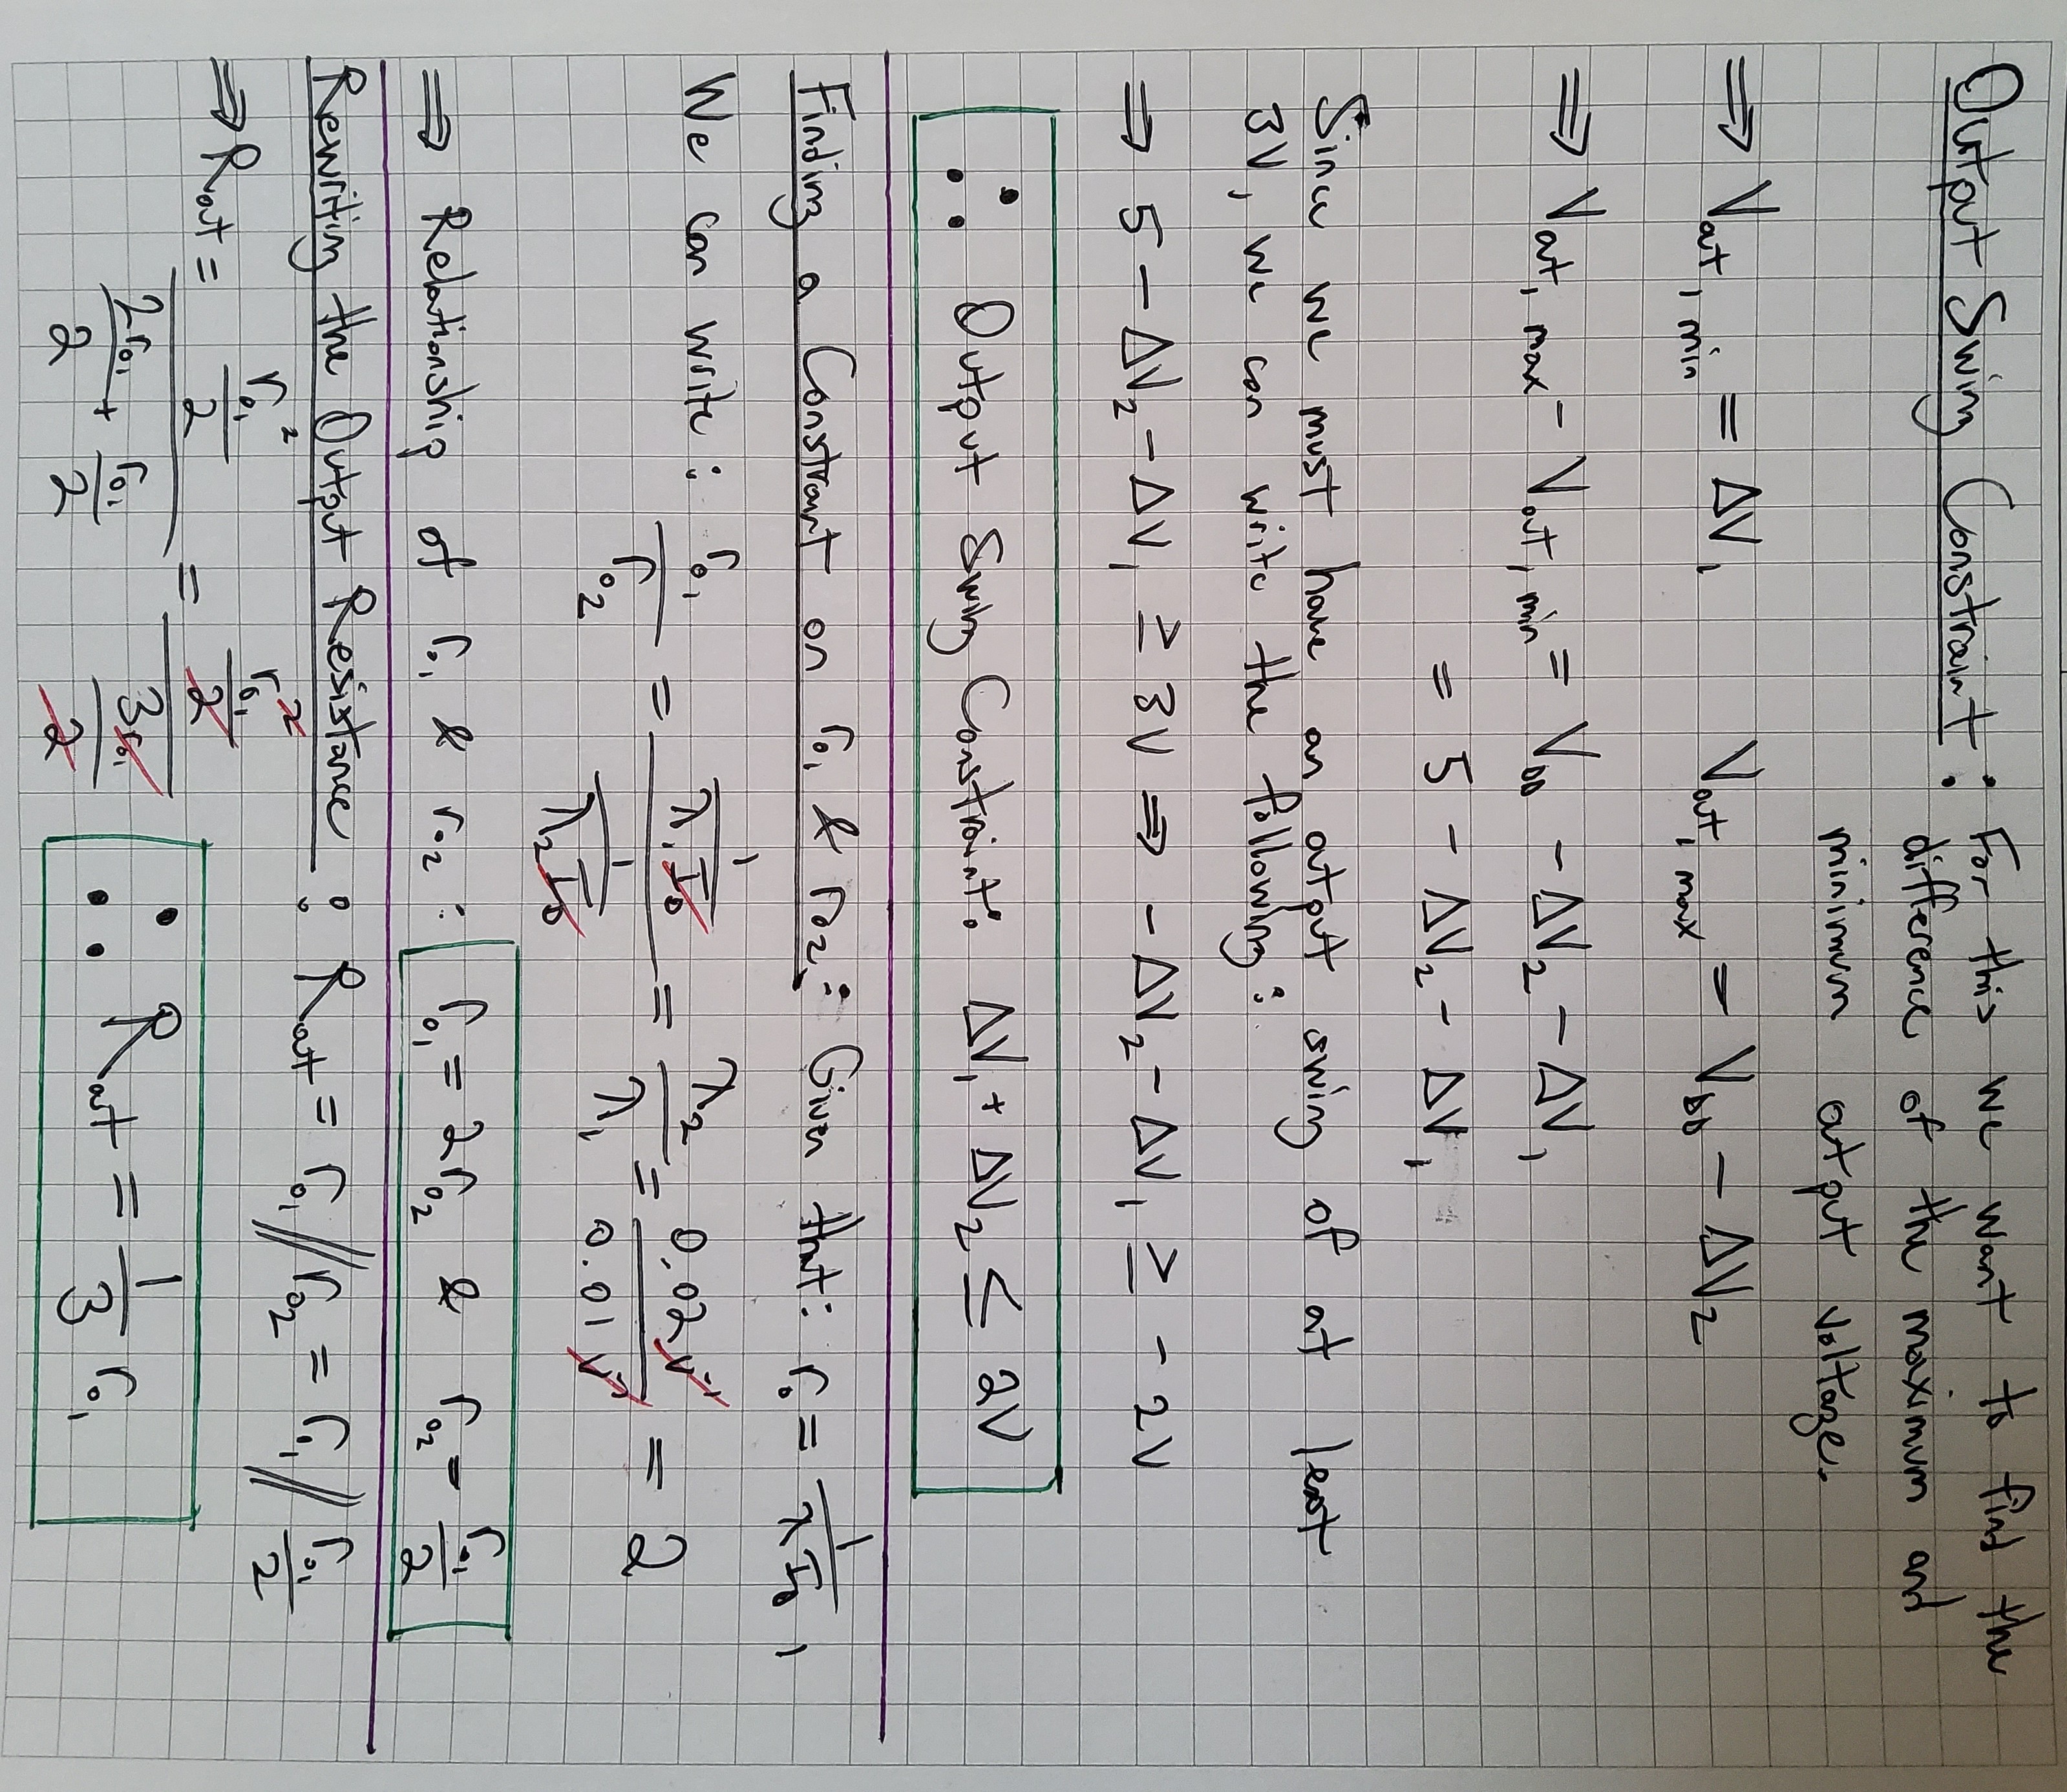 Output Swing Constraint: For this we want to find the
difference of the maximum and
minimum output voltage.
⟹ V_out, min = ΔV_1   V_out, max = V_DD − ΔV_2
⟹ V_out, max − V_out, min = V_DD − ΔV_2 − ΔV_1
= 5 − ΔV_2 − ΔV_1
Since we must have an output swing of at least
3V, we can write the following:
⟹ 5 − ΔV_2 − ΔV_1 ≥ 3V ⟹ −ΔV_2 − ΔV_1 ≥ −2V
∴ Output Swing Constraint: ΔV_1 + ΔV_2 ≤ 2V
Finding a Constraint on r_o1 & r_o2: Given that: r_o = 1/(λ I_D),
We can write: r_o1/r_o2 = (1/(λ_1 I_D))/(1/(λ_2 I_D)) = λ_2/λ_1 = 0.02 V^-1/0.01 V^-1 = 2
⟹ Relationship of r_o1 & r_o2: r_o1 = 2r_o2 & r_o2 = r_o1/2
Rewriting the Output Resistance: R_out = r_o1 // r_o2 = r_o1 // r_o1/2
⟹ R_out = (r_o1^2/2)/(2r_o1/2 + r_o1/2) = (r_o1^2/2)/(3r_o1/2)   ∴ R_out = 1/3 r_o1